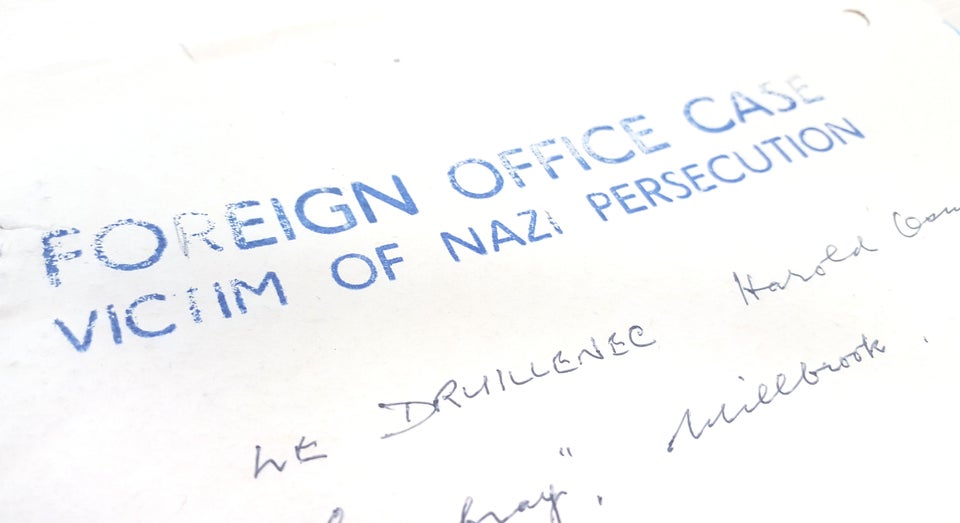 FOREIGN OFFICE CASE
VICTIM OF NAZI PERSECUTION
LE DRUILLENEC Harold
", Millbrook.